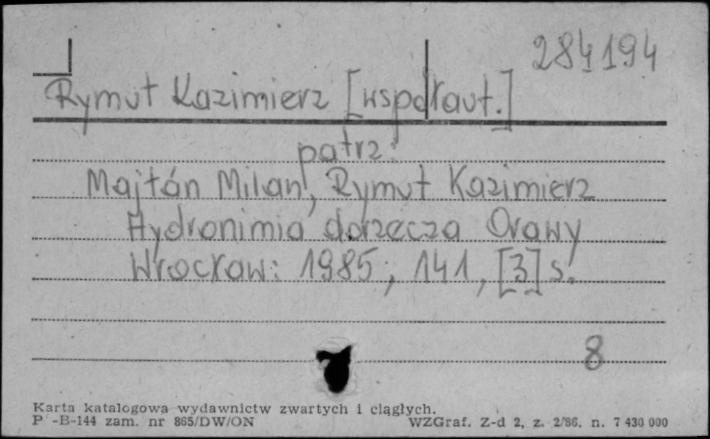 284194
Rymut Kazimierz [współaut.]
patrz:
Majtán Milan, Rymut Kazimierz
Hydronimia dorzecza Orawy
Wrocław: 1985, 141, [3] s.
8
Karta katalogowa wydawnictw zwartych i ciągłych.
P -B-144 zam. nr 865/DW/ON WZGraf. Z-d 2, z. 2/86. n. 7 430 000